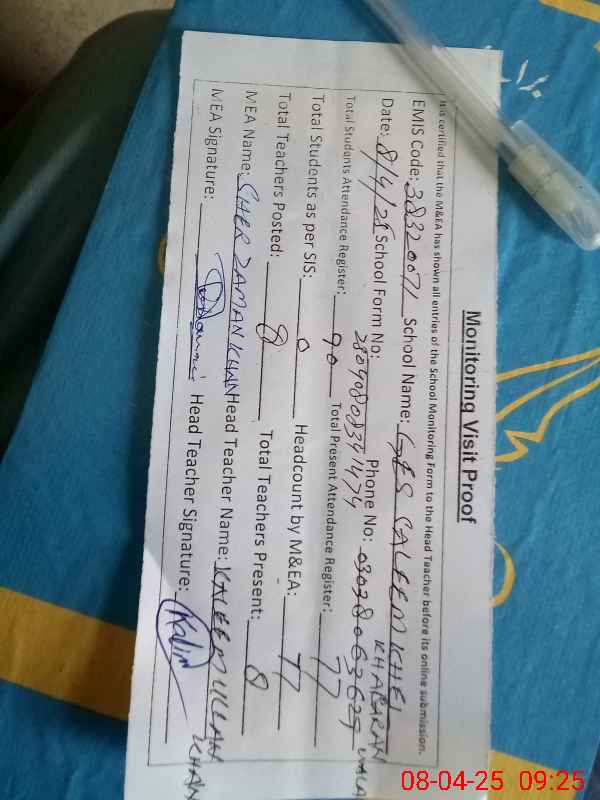 Monitoring Visit Proof
It is certified that the M&EA has shown all entries of the School Monitoring Form to the Head Teacher before its online submission.
EMIS Code: 38320071 School Name: GES SALEEM KHEL KHABARAN WALA
Date: 8/4/25 School Form No: 28040808391474 Phone No: 03038063629
Total Students Attendance Register: 90 Total Present Attendance Register: 77
Total Students as per SIS: 0 Headcount by M&EA: 77
Total Teachers Posted: 8 Total Teachers Present: 8
MEA Name: SHER ZAMAN KHAN Head Teacher Name: KALEEM ULLAH KHAN
MEA Signature: Head Teacher Signature: Kalim
08-04-25 09:25